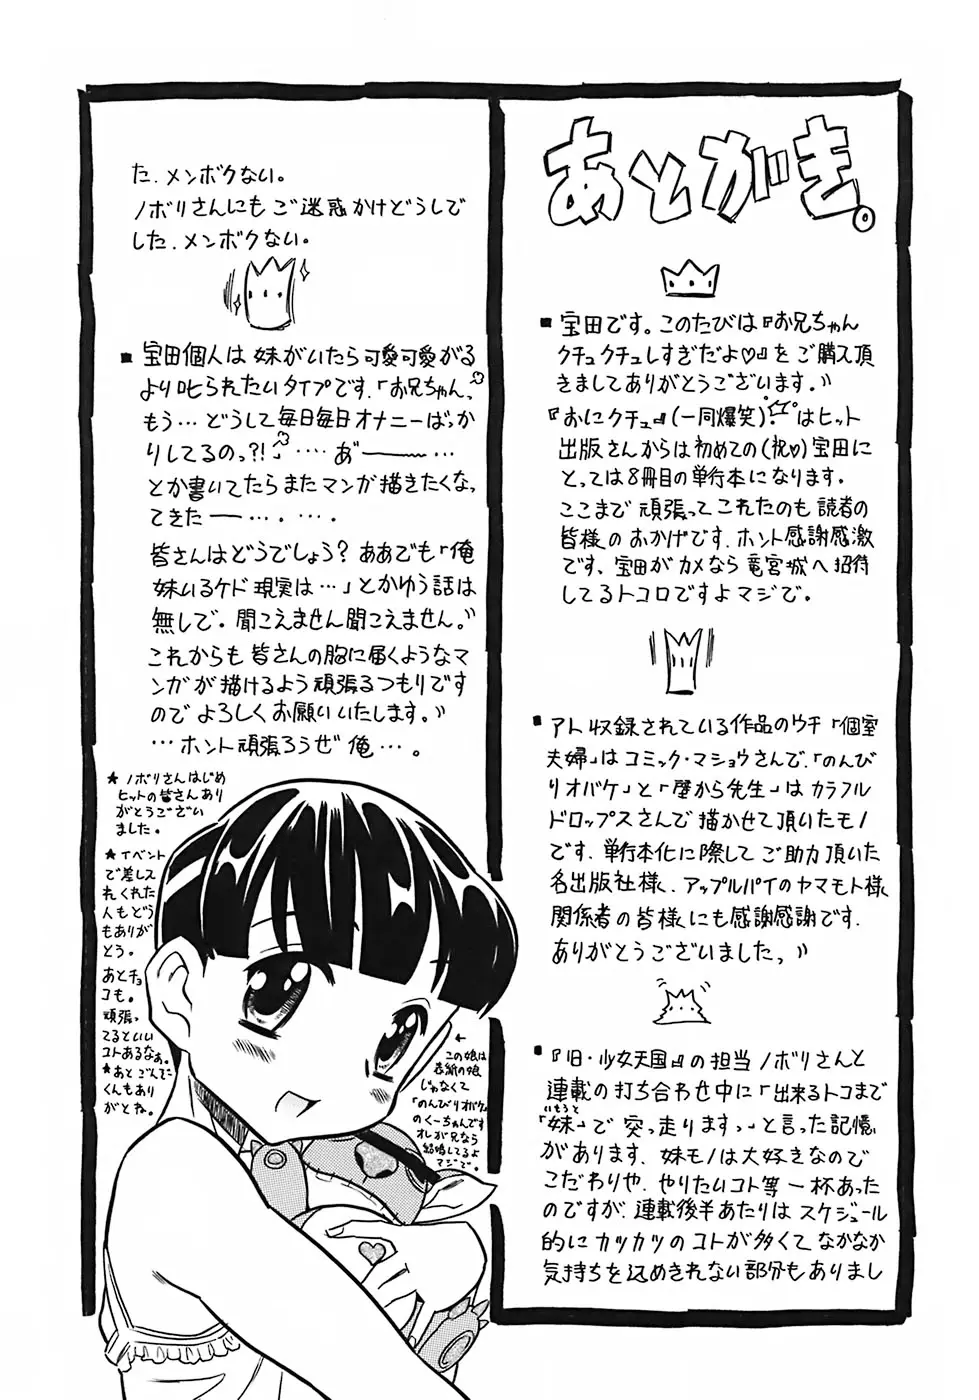 あとがき。
■宝田です。このたびは『お兄ちゃん
クチュクチュしすぎだよ♡』をご購入頂
きましてありがとうございます。〃
『おにクチュ』(一同爆笑)はヒット
出版さんからは初めての(祝♡)宝田に
とっては8冊目の単行本になります。
ここまで頑張ってこれたのも読者の
皆様のおかげです、ホント感謝感激
です、宝田がカメなら竜宮城へ招待
してるトコロですよマジで。
■アト収録されている作品のウチ「個室
夫婦」はコミック・マショウさんで、「のんび
りオバケ」と「壁から先生」はカラフル
ドロップスさんで描かせて頂いたモノ
です、単行本化に際してご助力頂いた
各出版社様、アップルパイのヤマモト様
関係者の皆様にも感謝感謝です、
ありがとうございましたっ〃
■『旧・少女天国』の担当ノボリさんと
連載の打ち合わせ中に「出来るトコまで
「妹」で突っ走りますっ」と言った記憶
いもうと
があります、妹モノは大好きなので
こだわりや、やりたいコト等一杯あった
のですが、連載後半あたりはスケジュール
的にカツカツのコトが多くてなかなか
気持ちを込めきれない部分もありまし
た、メンボクない。
ノボリさんにもご迷惑かけどうしで
した、メンボクない。
■宝田個人は妹がいたら可愛可愛がる
より叱られたいタイプです、「お兄ちゃん、
もう…どうして毎日毎日オナニーばっか
りしてるのっ?!」…あ゛――…
とか書いてたらまたマンガ描きたくなっ
てきたー…．…．
皆さんはどうでしょう?ああでも「俺
妹いるケド現実は…」とかゆう話は
無しで。聞こえません聞こえません。〃
これからも皆さんの胸に届くようなマ
ンガが描けるよう頑張るつもりです
のでよろしくお願いいたします。〃
…ホント頑張ろうぜ俺…。
★ノボリさんはじめ
ヒットの皆さんあり
がとうござい
ました。
★イベント
で差し入
れくれた
人もどう
もありが
とう。
あとチョ
コも。
頑張っ
てるといい
コトあるなぁ。
★あとごんた
くんもあり
がとね。
←
この娘は
表紙の娘
じゃなくて
「のんびりオバケ」
のくーちゃんです
オレが兄なら
結婚してるよ
マジで。